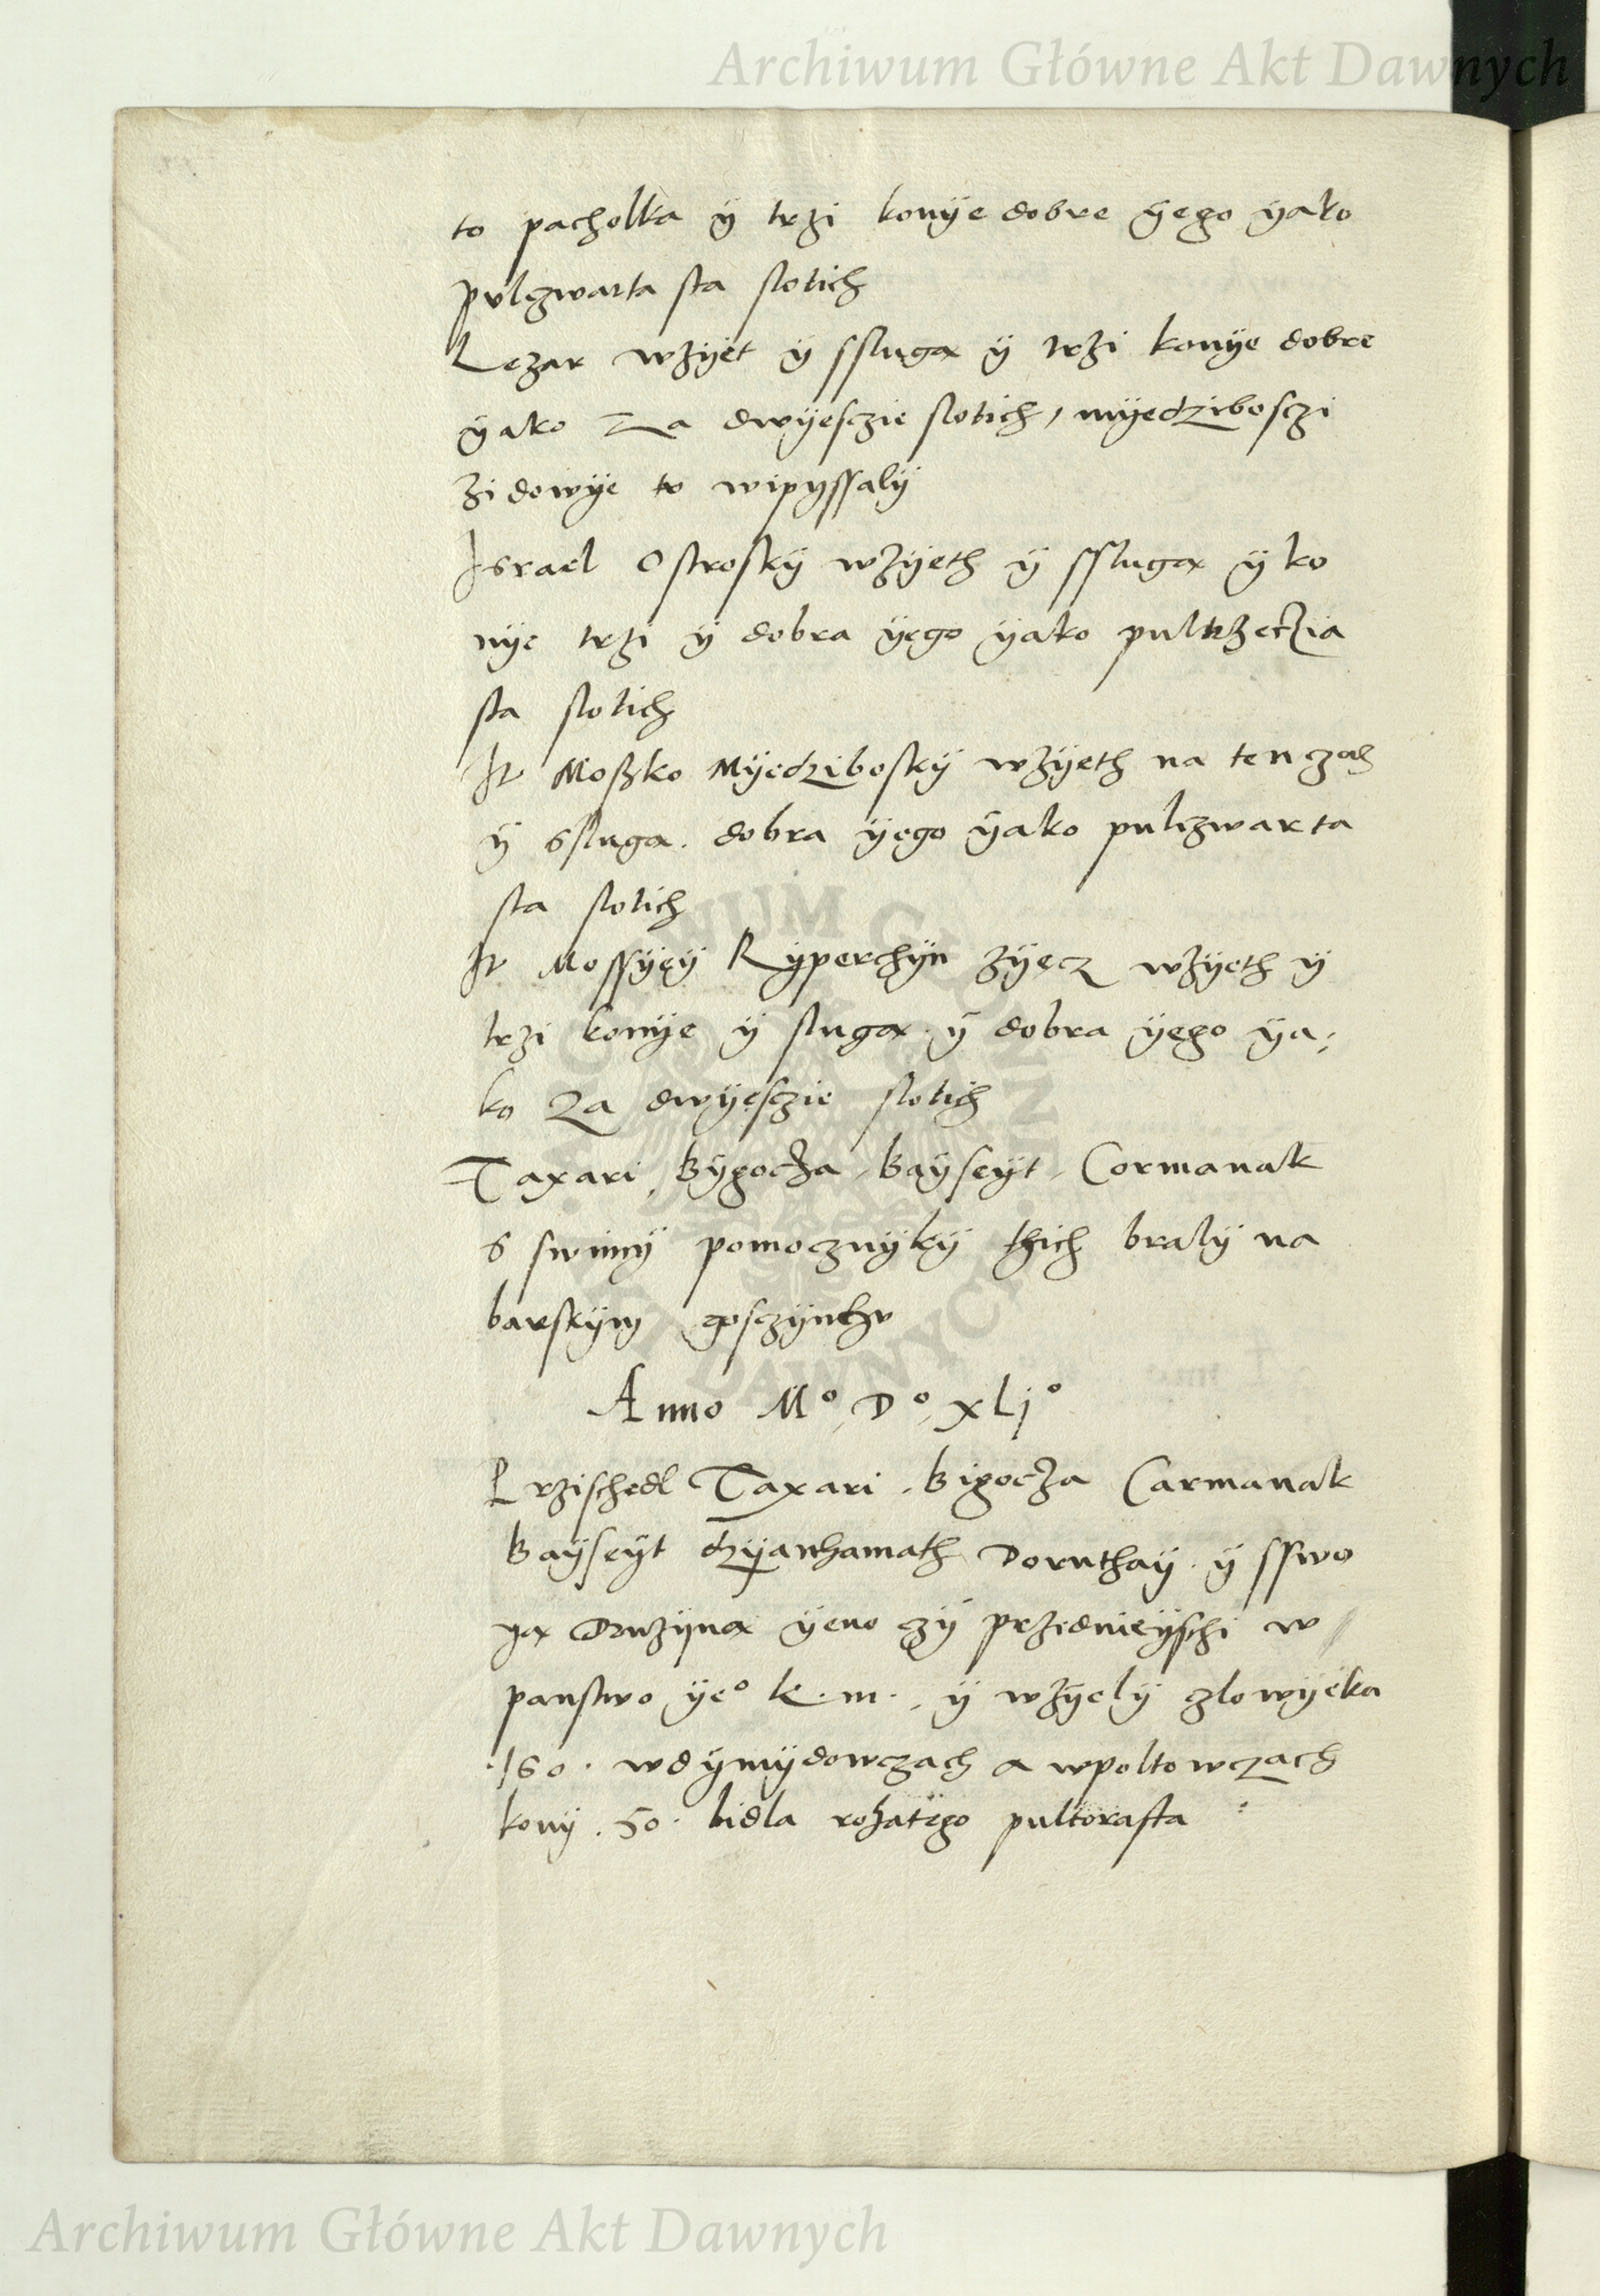 Archiwum Główne Akt Dawnych
to pacholka ÿ trzi konÿe dobre ÿego ÿako
pulczwarta sta slotich
Lezar wzÿet ÿ ssluga ÿ trzi konÿe dobre
ÿako za dwÿesczie slotich, mÿedzibosczi
zidowÿe to wipyssalÿ
Israel Ostroskÿ wzÿeth ÿ ssluga ÿ ko
nÿe trzi ÿ dobra ÿego ÿako pultrzeczia
sta slotich
It Moszko Mÿedziboskÿ wzÿeth na ten czas
ÿ ssluga. dobra ÿego ÿako pulczwarta
sta slotich
It Mossÿeÿ Rÿperchÿn zÿecz wzÿeth ÿ
trzi konÿe ÿ sluga. ÿ dobra ÿego ÿa;
ko za dwÿesczie slotich
Taxari, Bÿgocza, Baÿseÿt, Cormanak
s swimÿ pomocznÿkÿ thich bralÿ na
barskÿm gosczÿnczu
Anno Mº, Dº, xljº
Przischedl Taxari, Bigocza Carmanak
Baÿseÿt dzÿanhamath Dornthaÿ. ÿ sswo
ya Druzÿna ÿeno czÿ przednieÿschi w
panstwo ÿeº k. m., ÿ wzÿelÿ czlowÿeka
.160. wdÿmÿdowczach a wpoltowczach
konÿ .50. bidla rohatego pultorasta
Archiwum Główne Akt Dawnych